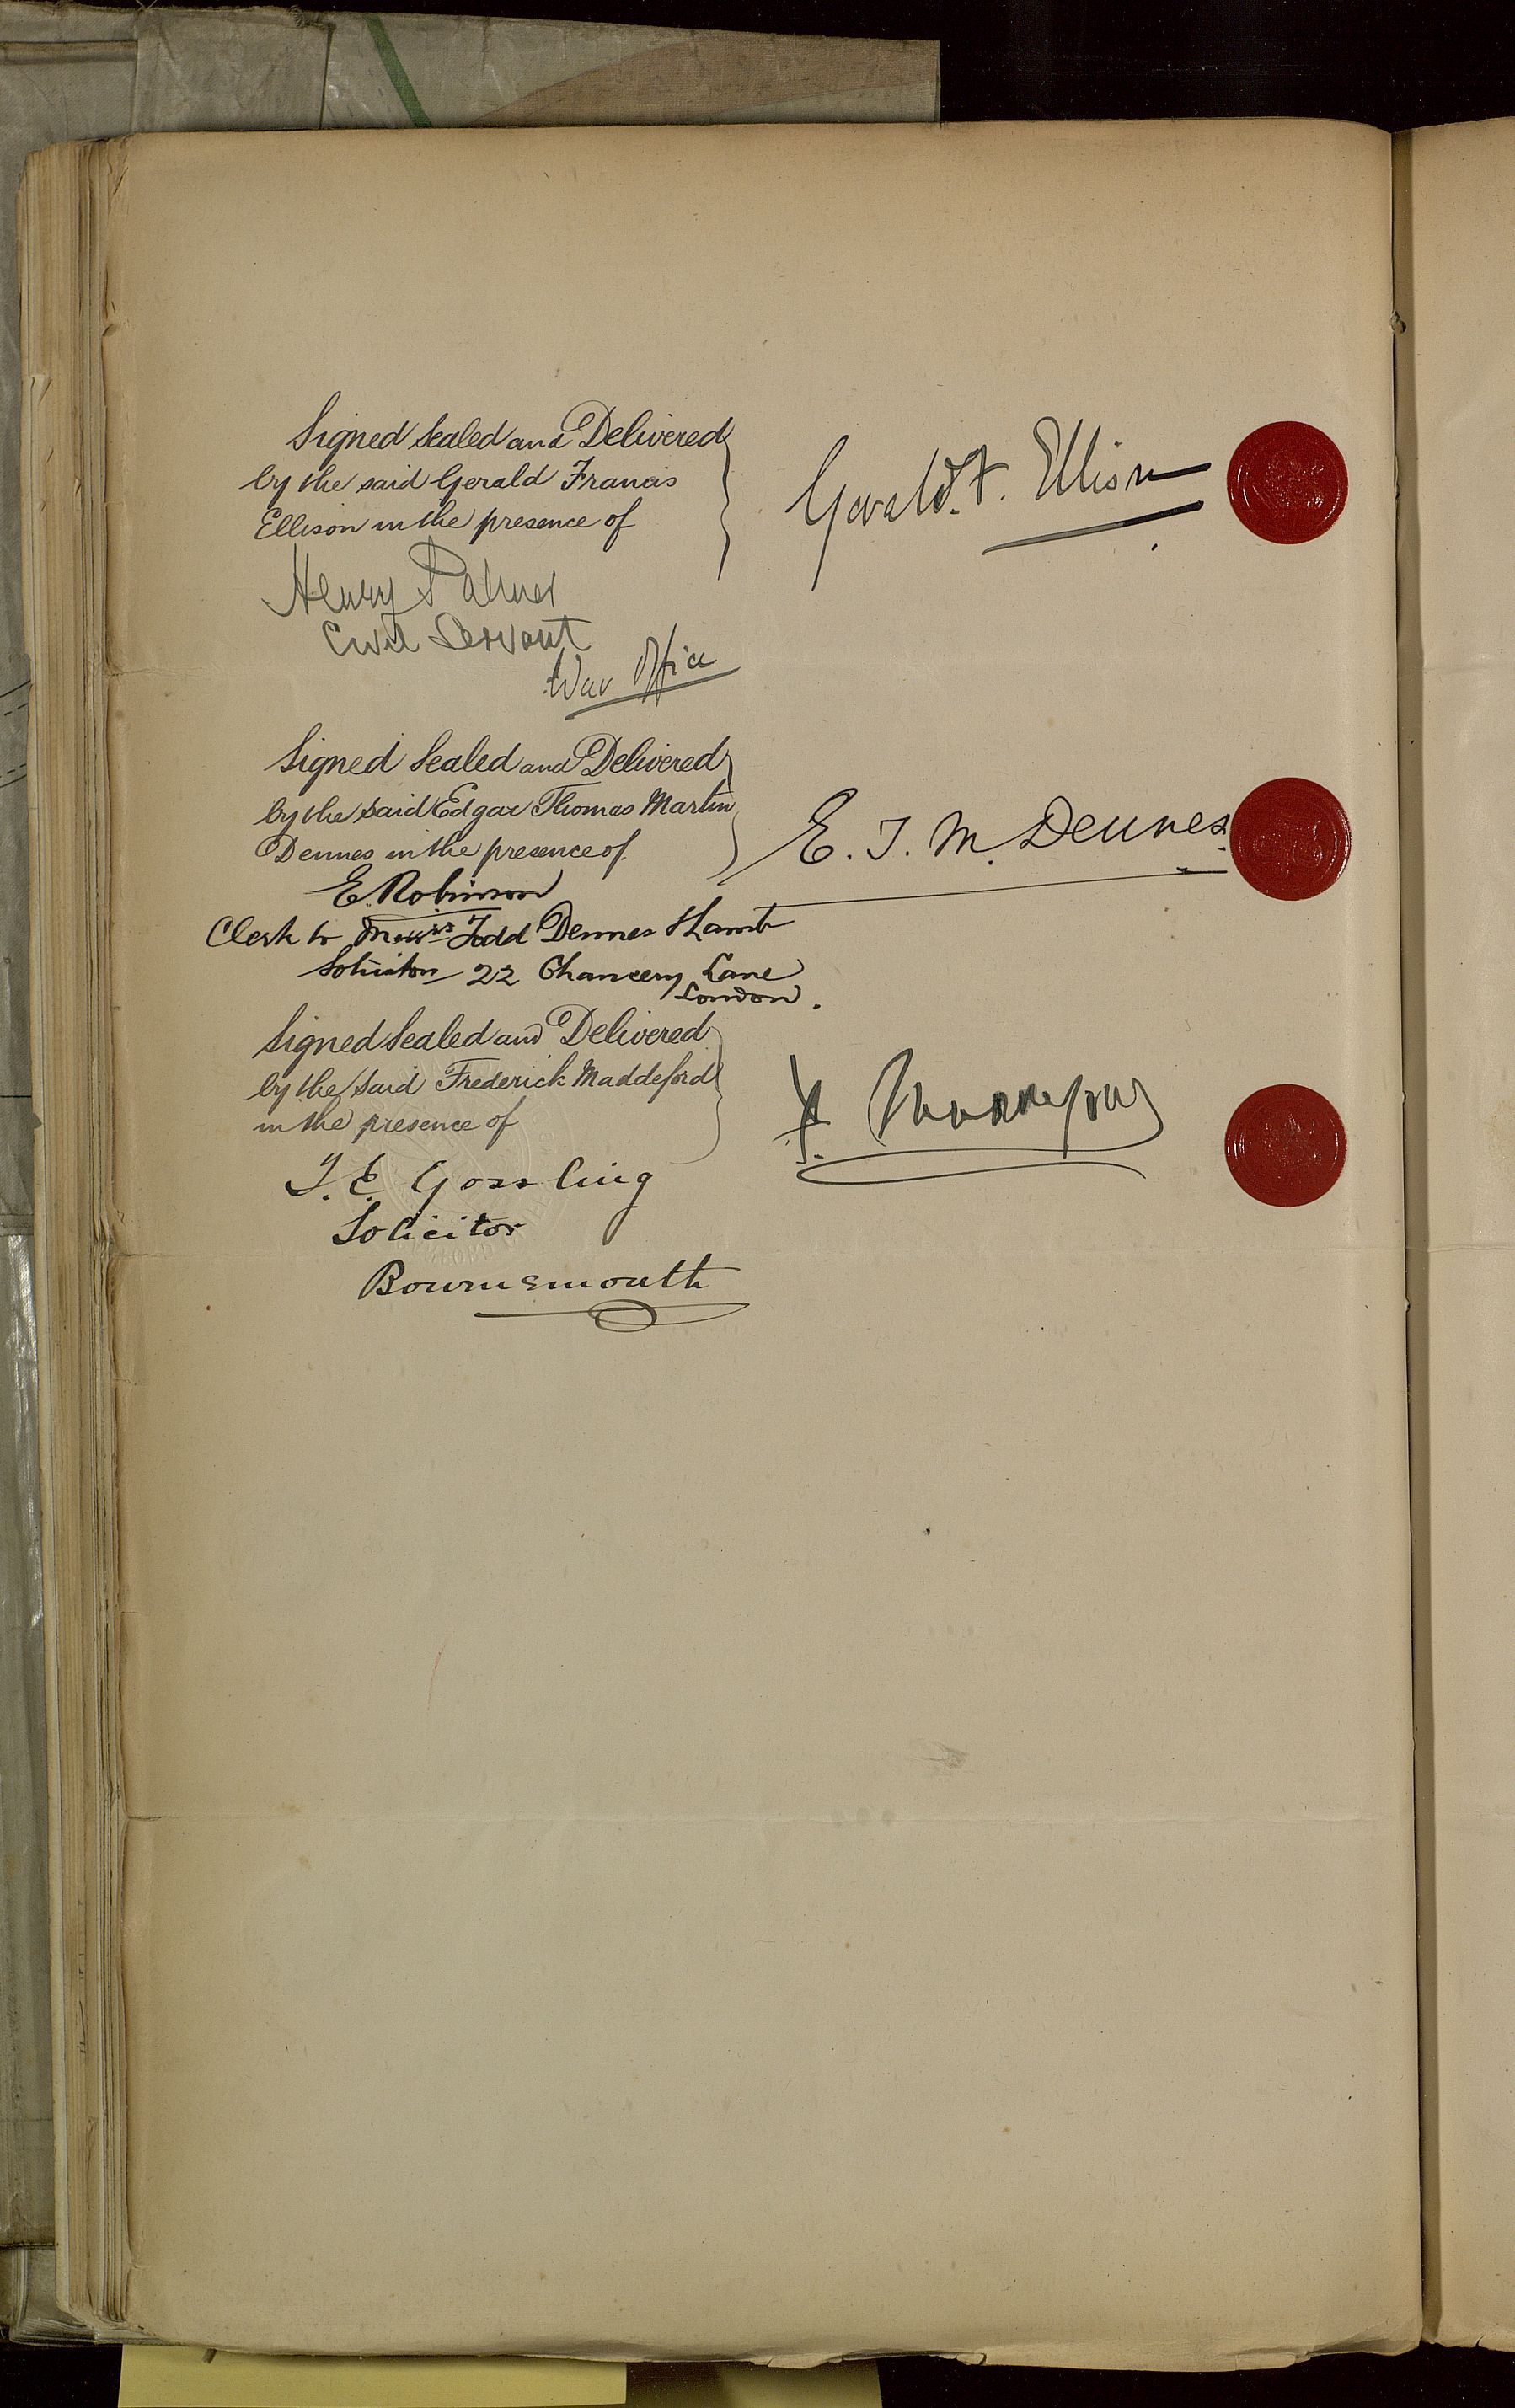 Signed Sealed and Delivered
by the said Gerald Francis
Ellison in the presence of
Gerald. F. Ellison
Henry Palmer
Civil Servant
War Office
Signed Sealed and Delivered
by the said Edgar Thomas Martin
Dennes in the presence of
E. T. M. Dennes.
E. Robinson
Clerk to Messrs Todd Dennes & Lamb
Solicitors 22 Chancery Lane
London.
Signed Sealed and Delivered
by the said Frederick Maddeford
in the presence of
F. Maddeford
T. E. Gossling
Solicitor
Bournemouth